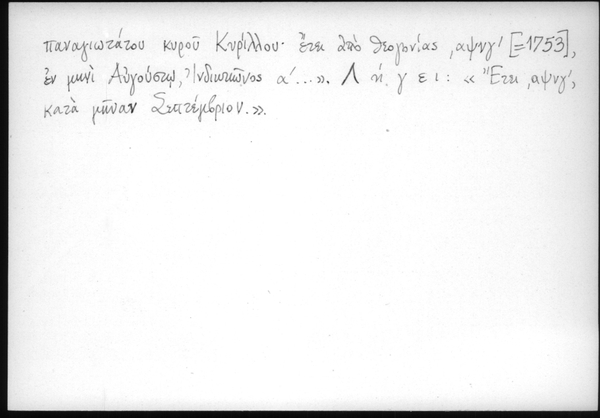 παναγιωτάτου κυροῦ Κυρίλλου· ἔτει ἀπὸ θεογονίας ͵αψνγʹ [=1753],
ἐν μηνὶ Αὐγούστῳ, Ἰνδικτιῶνος αʹ...». Λ ή γ ε ι : « Ἔτει ͵αψνγʹ,
κατὰ μῆναν Σεπτέμβριον.».